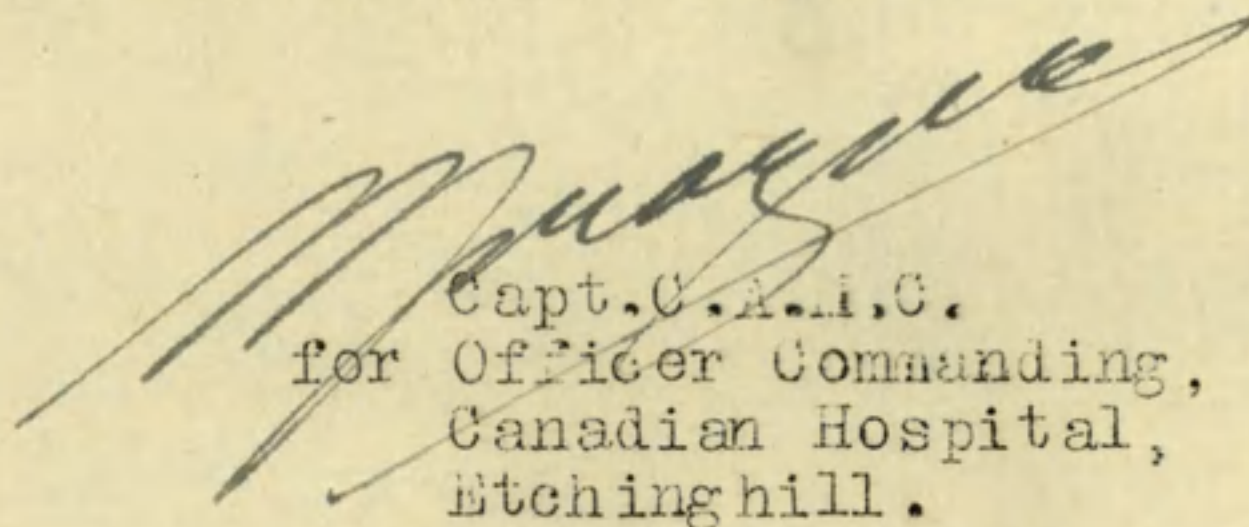 Capt.C.A.M.C.
for Officer Commanding,
Canadian Hospital,
Etchinghill.